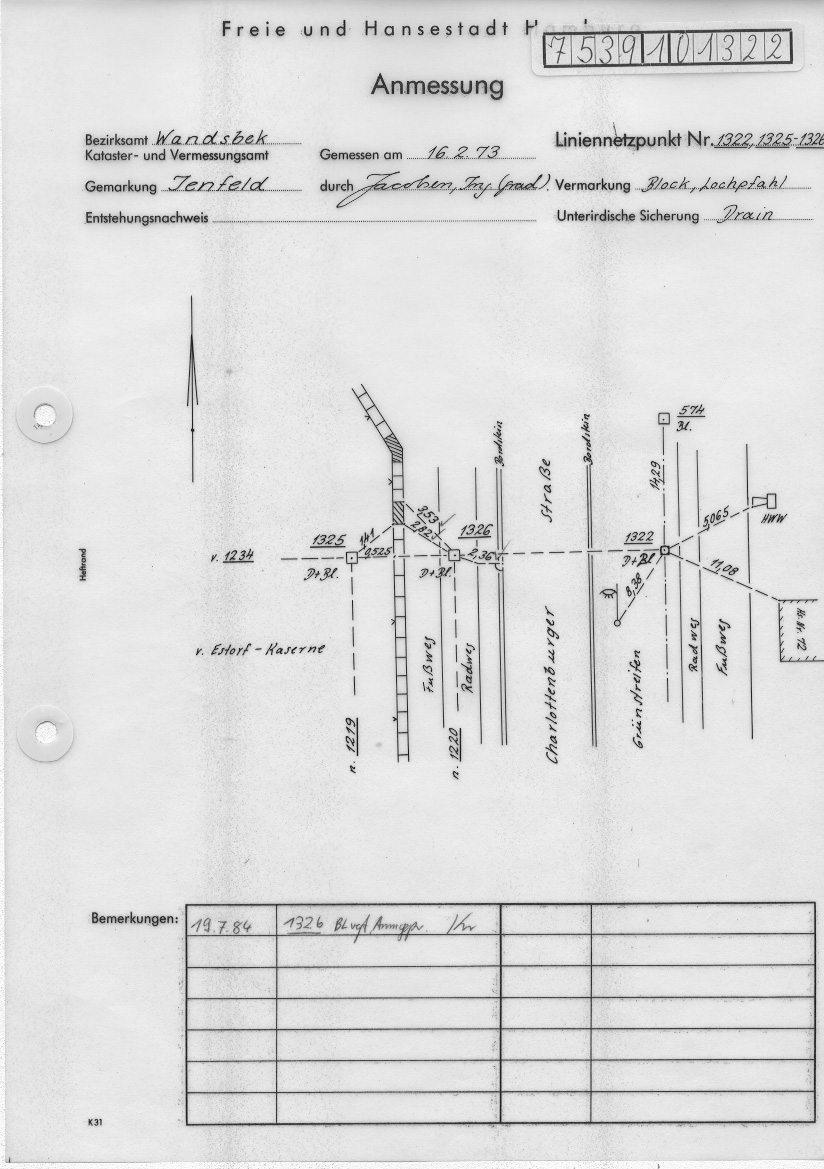 Freie und Hansestadt Hamburg
7539101322
Anmessung
Bezirksamt Wandsbek
Kataster- und Vermessungsamt
Gemessen am 16.2.73
Liniennetzpunkt Nr. 1322, 1325-1326
Gemarkung Jenfeld
durch Jacobsen, Ing. (grad).
Vermarkung Block, Lochpfahl
Entstehungsnachweis
Unterirdische Sicherung Drain
574
Bl.
Bordstein
Bordstein
Straße
14,29
3,53
2,82
1326
1325
1,41
0,525
2,36
1322
5,065
HWW
v. 1234
D+Bl.
D+Bl.
D+Bl
8,38
11,08
Hs. Nr. 72
v. Estorf-Kaserne
Fußweg
Radweg
Charlottenburger
Grünstreifen
Radweg
Fußweg
n. 1219
n. 1220
Heftrand
Bemerkungen:
19.7.84
1326 Bl vgf. Kr
K31